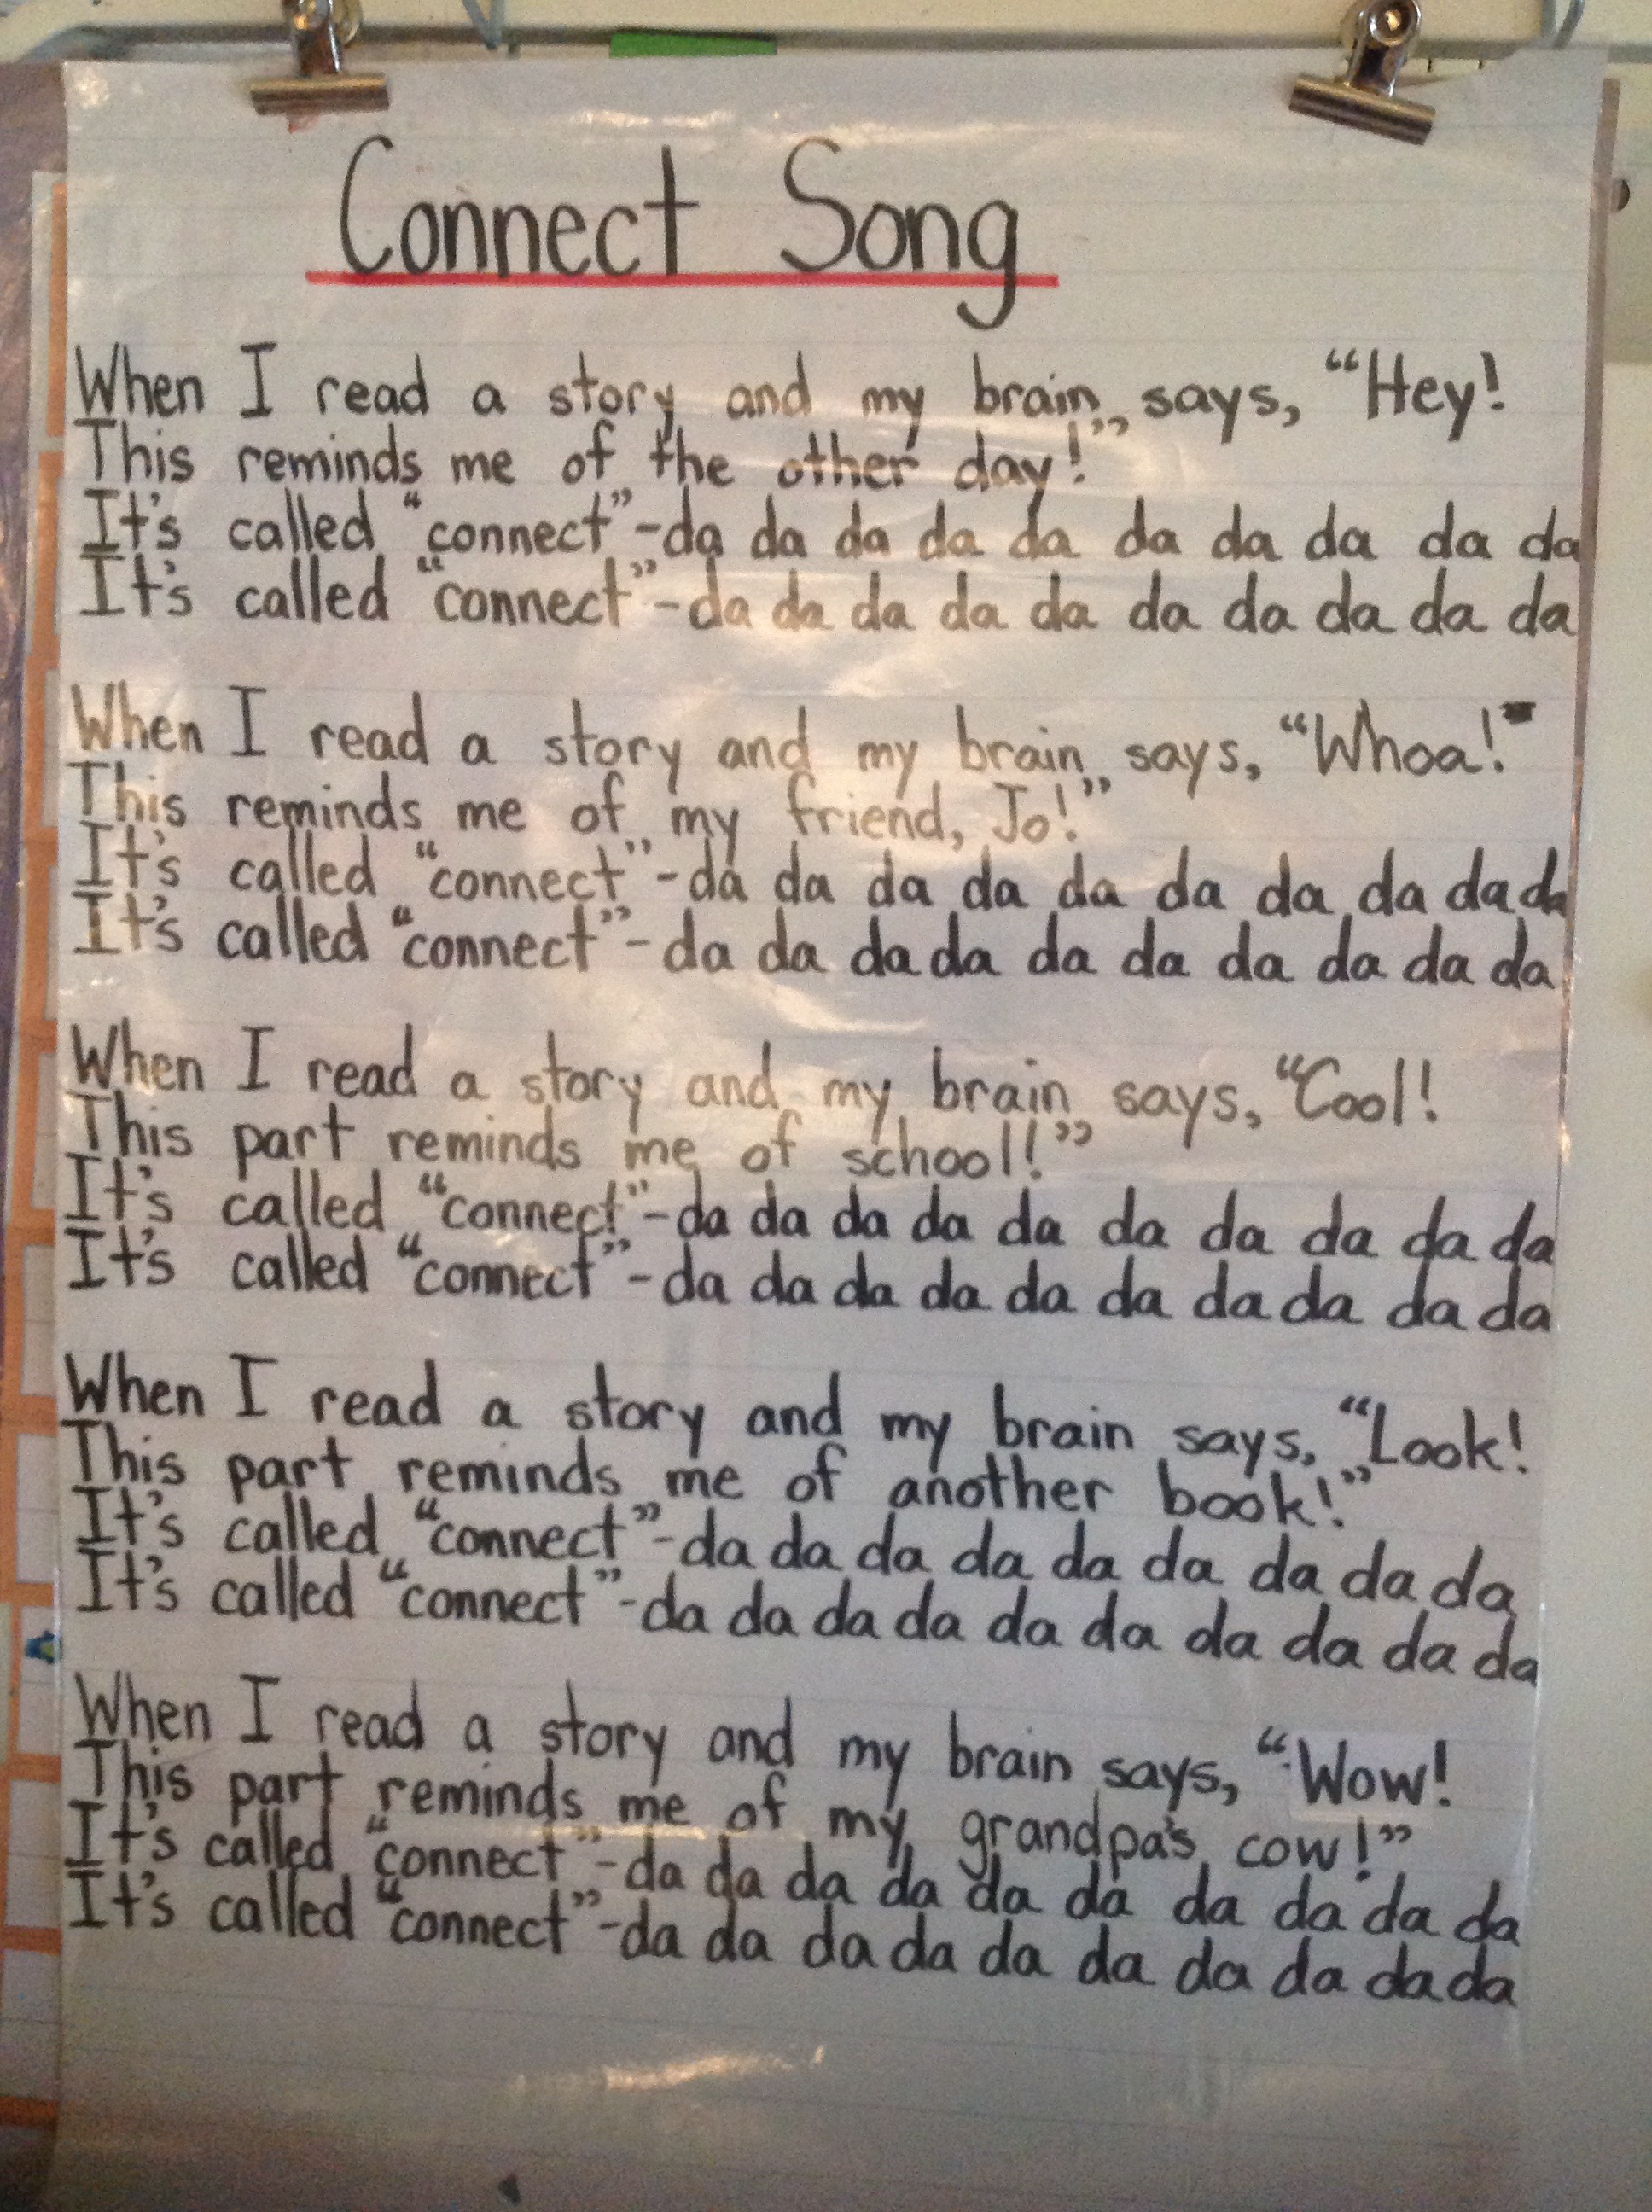 Connect Song
When I read a story and my brain says, “Hey!
This reminds me of the other day!”
It's called “connect”-da da da da da da da da da da
It's called “connect”-da da da da da da da da da da
When I read a story and my brain says, “Whoa!
This reminds me of my friend, Jo!”
It's called “connect”-da da da da da da da da da da
It's called “connect”-da da da da da da da da da da
When I read a story and my brain says, “Cool!
This part reminds me of school!”
It's called “connect”-da da da da da da da da da da
It's called “connect”-da da da da da da da da da da
When I read a story and my brain says, “Look!
This part reminds me of another book!”
It's called “connect”-da da da da da da da da da
It's called “connect”-da da da da da da da da da da
When I read a story and my brain says, “Wow!
This part reminds me of my grandpa's cow!”
It's called “connect”-da da da da da da da da da da
It's called “connect”-da da da da da da da da da da